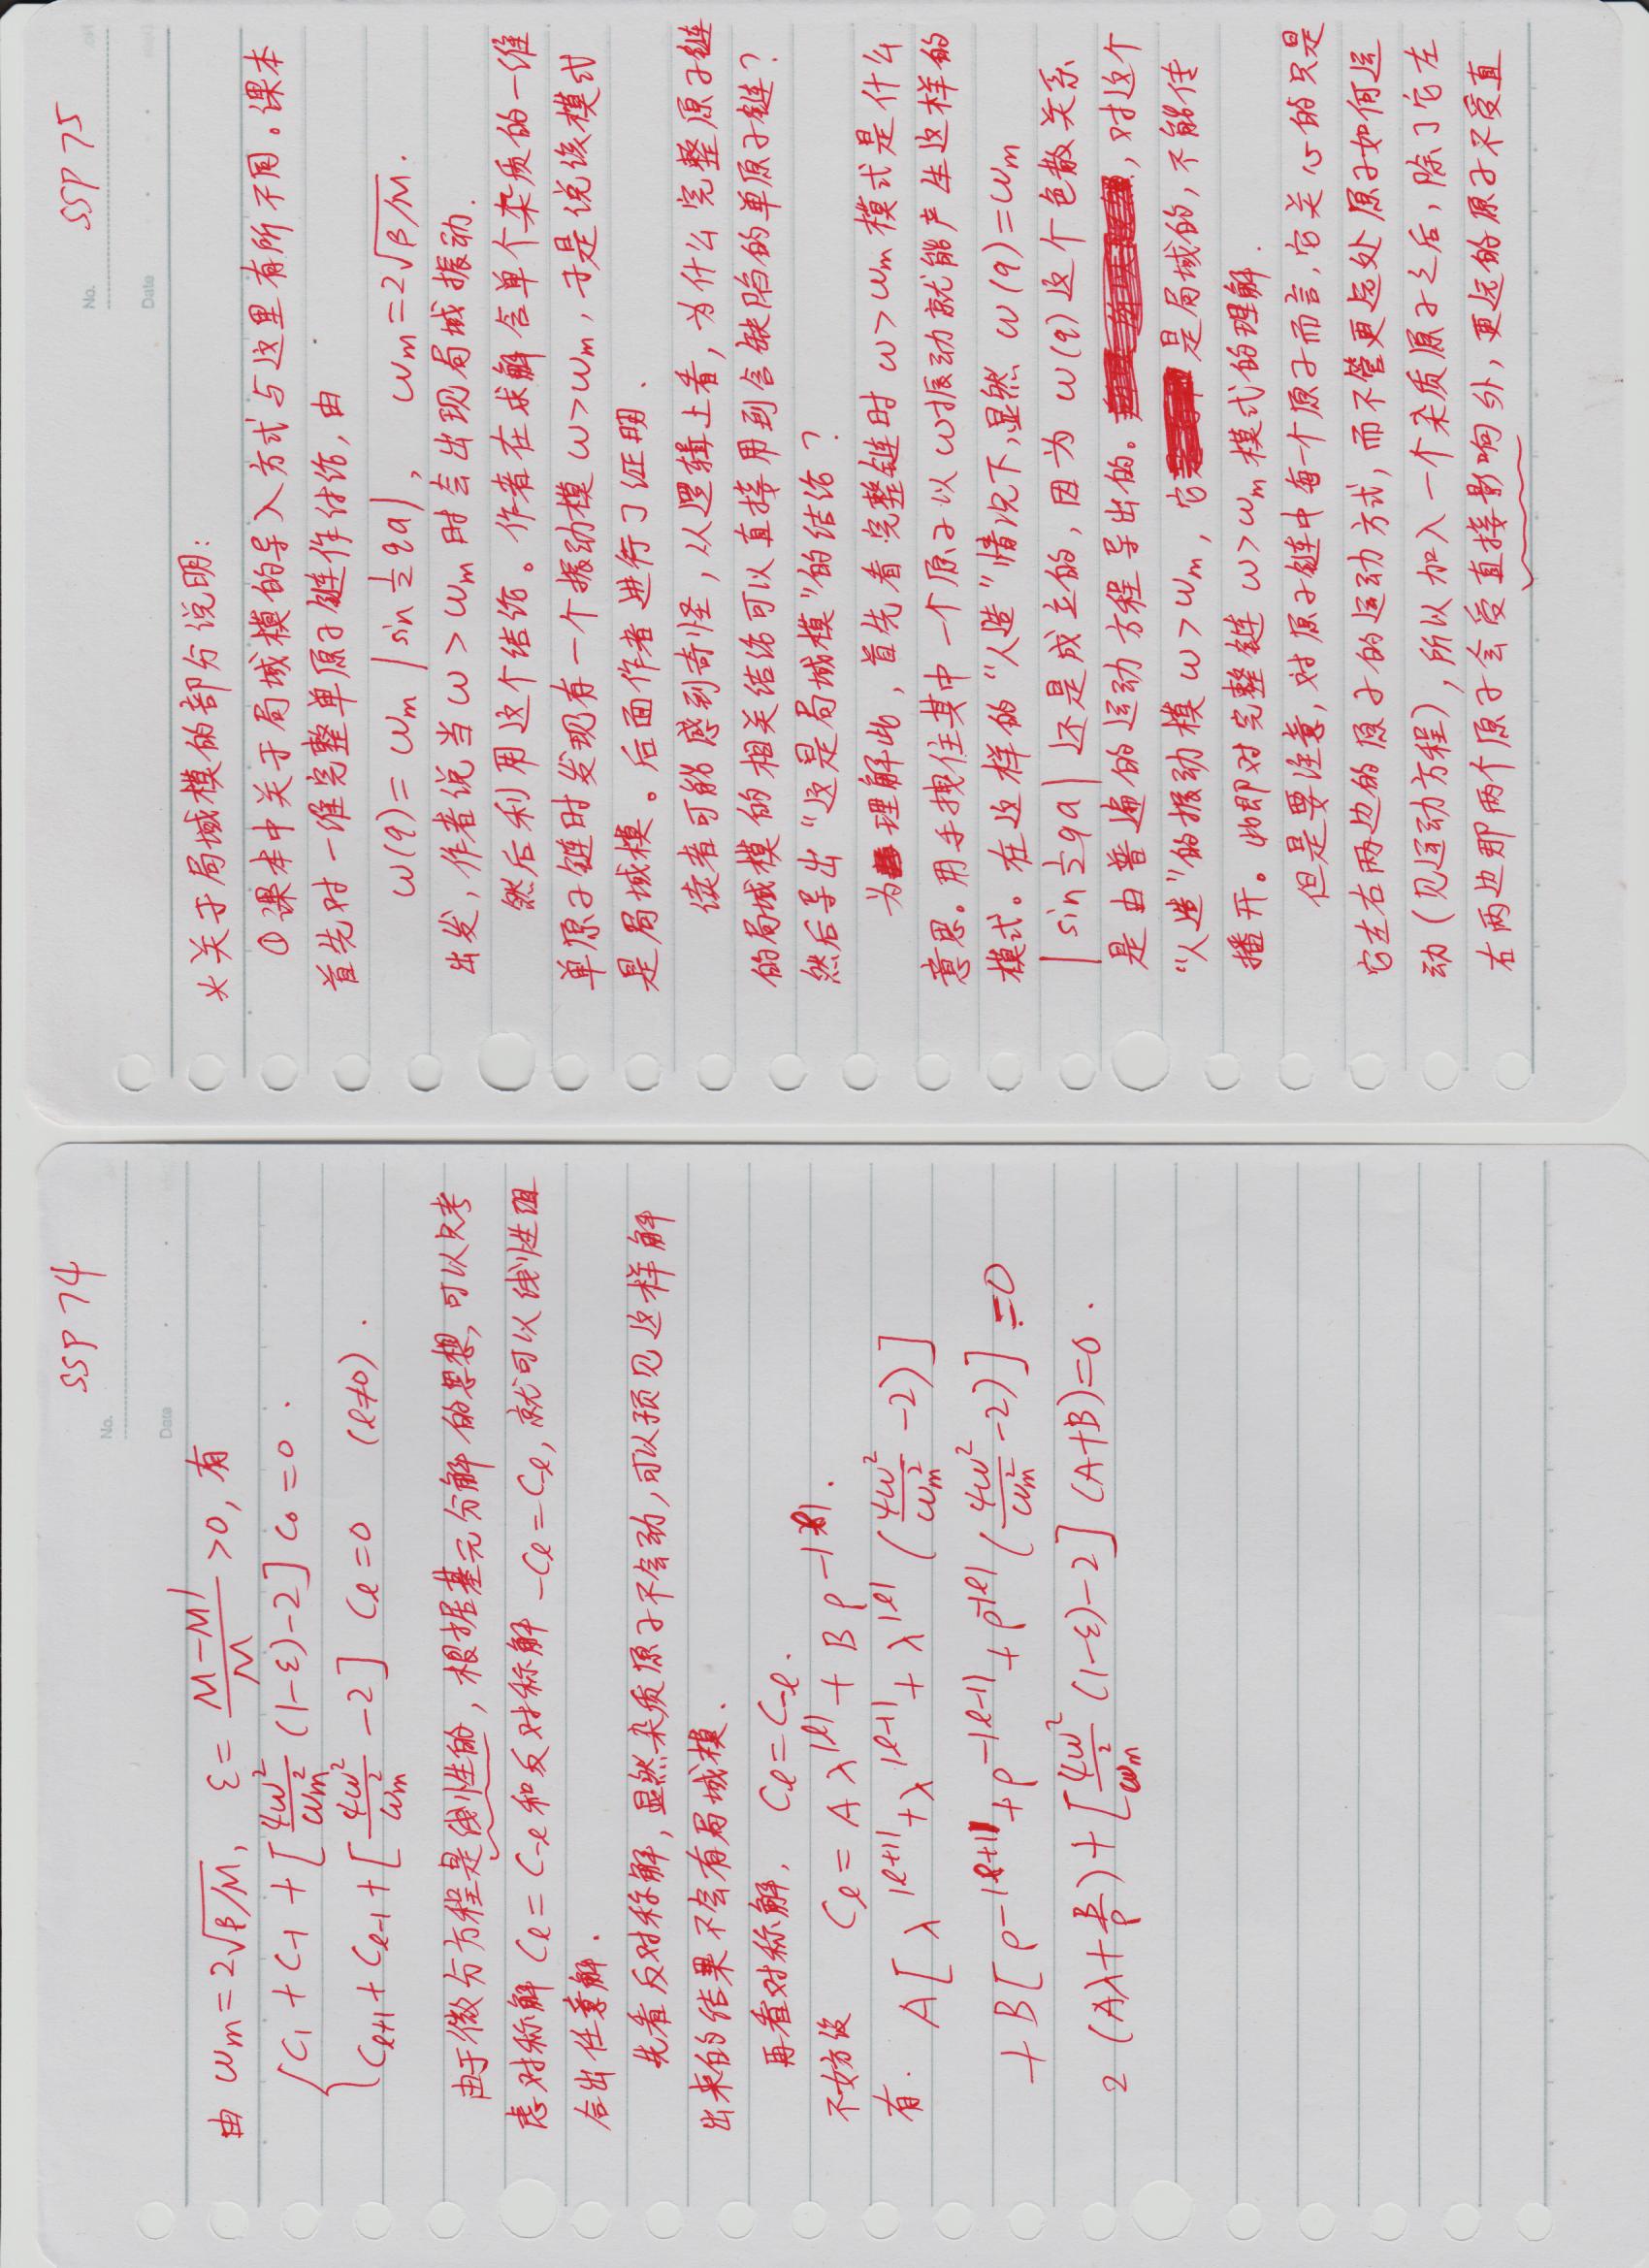 SSP 74
No.
Date
由 ωm = 2√(β/M), ε = (M-M')/M >0, 有
C₁ + C₋₁ + [4ω²/ωm² (1-ε) - 2] C₀ = 0.
Cℓ₊₁ + Cℓ₋₁ + [4ω²/ωm² - 2] Cℓ = 0 (ℓ≠0).
由于微分方程是线性的, 根据基元分解的思想, 可以只考
虑对称解 Cℓ = C₋ℓ 和反对称解 -Cℓ = C₋ℓ, 就可以线性组
合出任意解.
先看反对称解, 显然杂质原子不会动, 可以预见这样解
出来的结果不会有局域模.
再看对称解, Cℓ = C₋ℓ.
不妨设 Cℓ = Aλ^|ℓ| + Bρ^-|ℓ|.
有. A[λ^|ℓ+1| + λ^|ℓ-1| + λ^|ℓ| (4ω²/ωm² - 2)]
+ B[ρ^-|ℓ+1| + ρ^-|ℓ-1| + ρ^-|ℓ| (4ω²/ωm² - 2)] = 0
2(Aλ + B/ρ) + [4ω²/ωm² (1-ε) - 2] (A+B) = 0.
SSP 75
No.
Date
*关于局域模的部分说明:
①课本中关于局域模的导入方式与这里有所不同。课本
首先对一维完整单原子链作讨论, 由
ω(q) = ωm |sin ½qa|, ωm = 2√(β/M).
出发, 作者说当 ω > ωm 时会出现局域振动.
然后利用这个结论。作者在求解含单个杂质的一维
单原子链时发现有一个振动模 ω>ωm, 于是说该模式
是局域模。后面作者进行了证明.
读者可能感到奇怪, 从逻辑上看, 为什么完整原子链
的局域模的相关结论可以直接用到含缺陷的单原子链?
然后导出“这是局域模”的结论?
为理解此, 首先看完整链时 ω>ωm 模式是什么
意思。用手拽住其中一个原子以ω振动就能产生这样的
模式。在这样的“人造”情况下, 显然 ω(q) = ωm
|sin ½qa| 还是成立的, 因为 ω(q) 这个色散关系
是由普遍的运动方程导出的。, 对这个
“人造”的振动模 ω>ωm, 它是局域的, 不能传
播开。此即对完整链 ω>ωm 模式的理解.
但是要注意, 对原子链中每一个原子而言, 它关心的只是
它左右两边的原子的运动方式, 而不管更远处原子如何运
动(见运动方程), 所以加入一个杂质原子之后, 除了它左
右两边那两个原子会受直接影响外, 更远的原子不受直